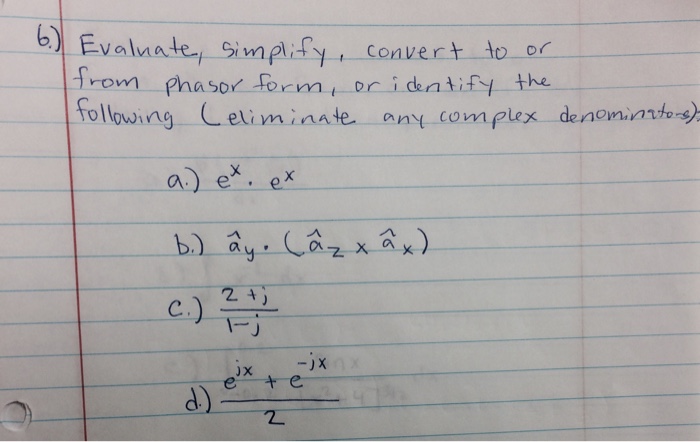 6.) Evaluate, simplify, convert to or
from phasor form, or identify the
following (eliminate any complex denominators):
a.) e^x · e^x
b.) â_y · (â_z × â_x)
c.) (2 + j)/(1 - j)
d.) (e^{jx} + e^{-jx})/2